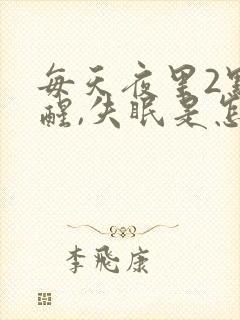 每天夜里2
醒,失眠是怎
李飛康